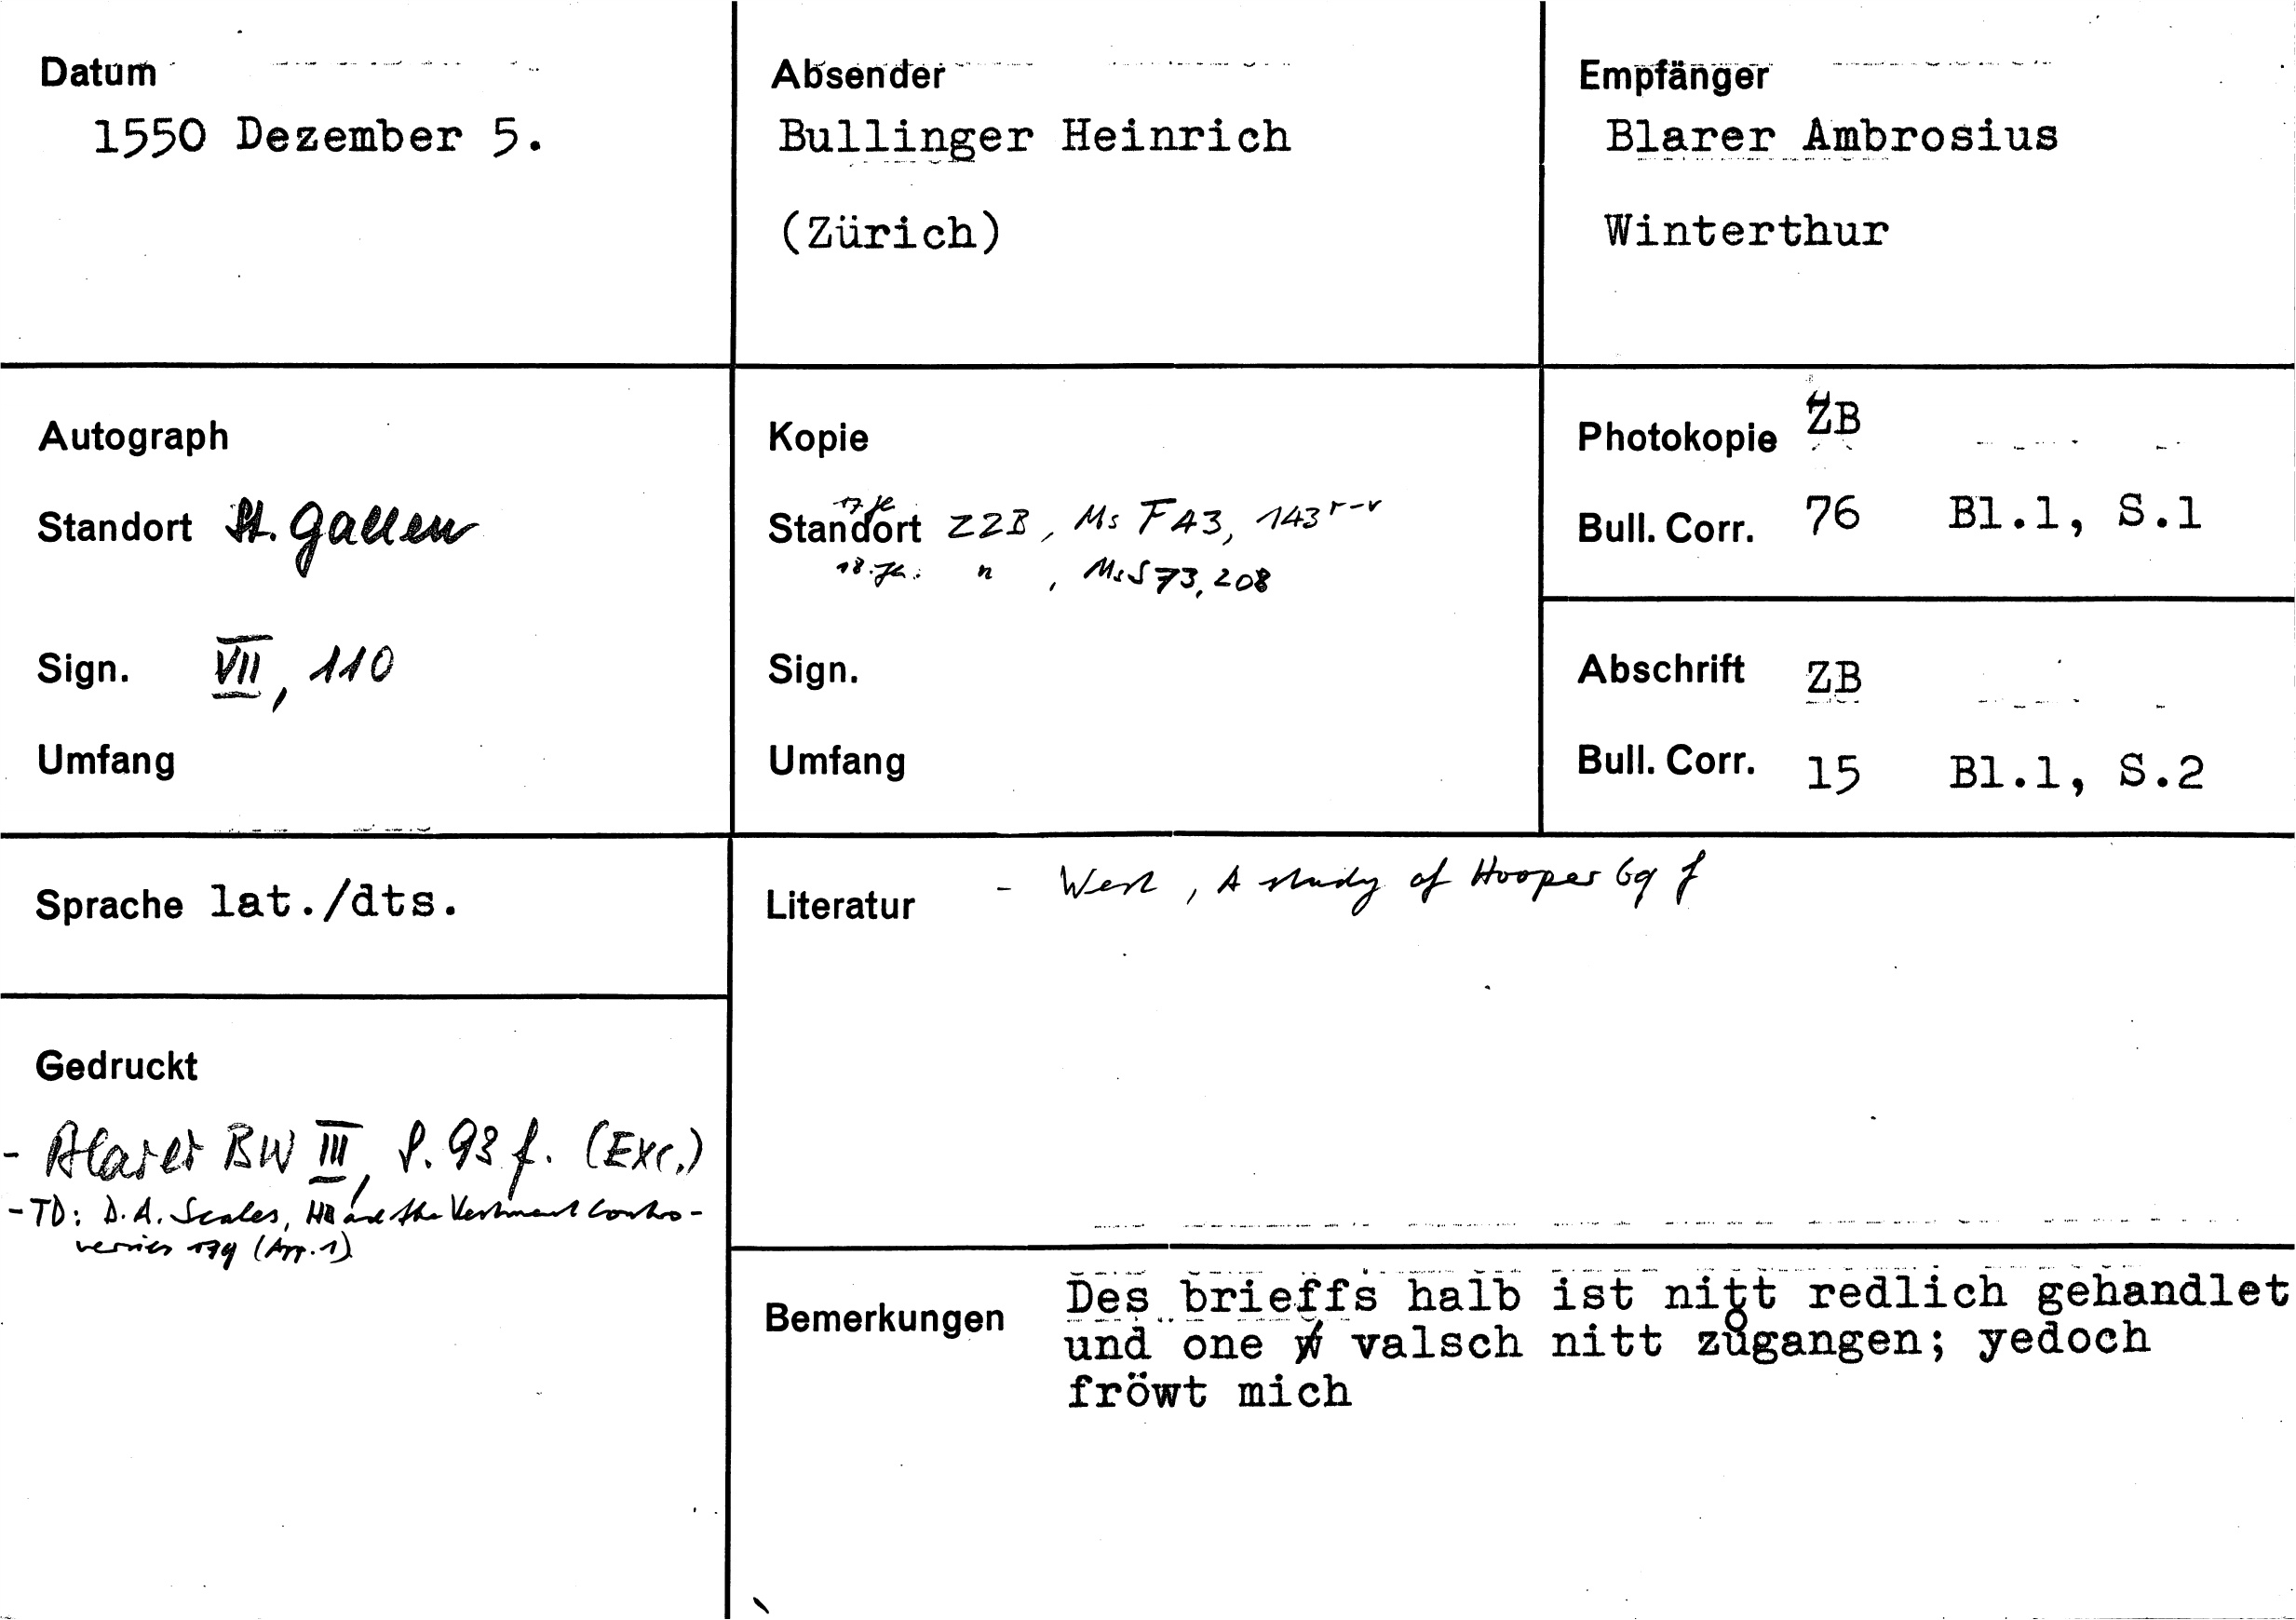 Datum
1550 Dezember 5.
Absender
Bullinger Heinrich
(Zürich)
Empfänger
Blarer Ambrosius
Winterthur
Autograph
Standort St. Gallen
Sign. VII, 110
Umfang
Kopie
17. Jh.
Standort ZZB, Ms F 43, 143 r-v
18. Jh. " , Ms S 73, 208
Sign.
Umfang
Photokopie ZB
Bull. Corr. 76 Bl.1, S.1
Abschrift ZB
Bull. Corr. 15 Bl.1, S.2
Sprache lat./dts.
Literatur - West, A study of Hooper 69 f
Gedruckt
- Blarer BW III, S. 93 f. (Exc.)
- TD: D. A. Scales, HB and the Vestment Contro-
versies 179 (App. 1)
Bemerkungen
Des brieffs halb ist nitt redlich gehandlet
und one valsch nitt zůgangen; yedoch
fröwt mich